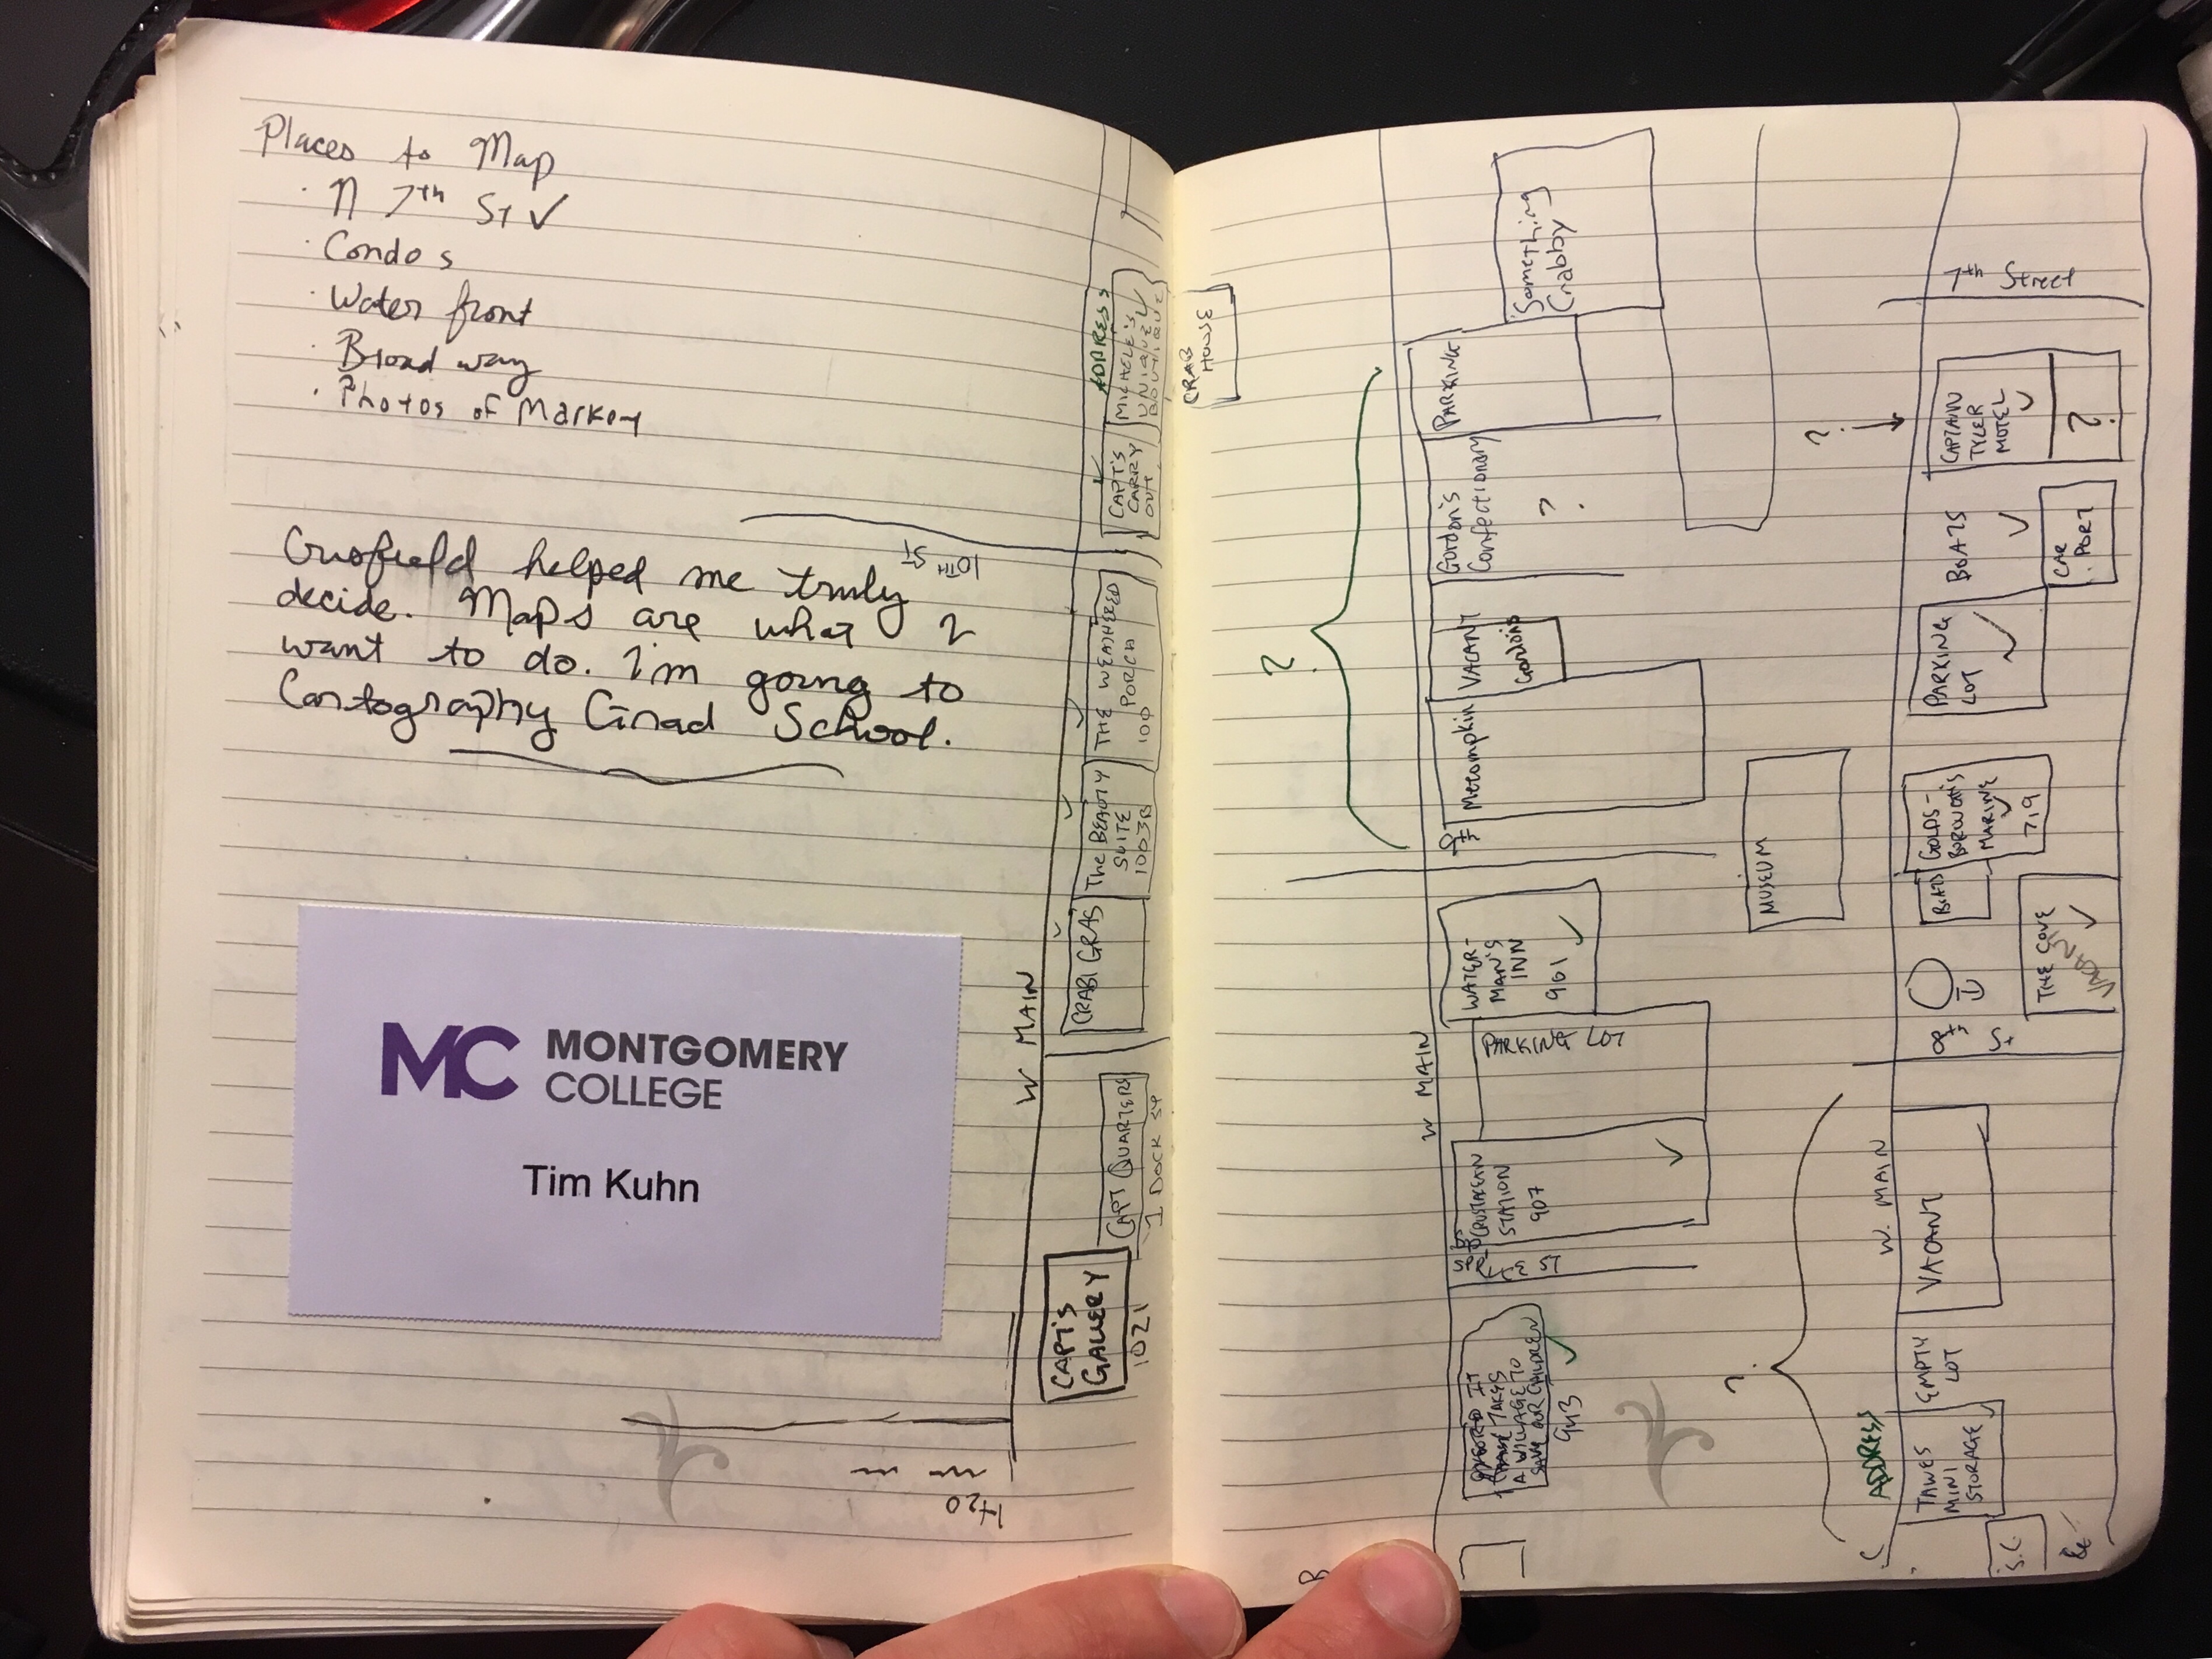 Places to Map
· N 7th St ✓
· Condos
· Water front
· Broad way
· Photos of Market
Crisfield helped me truly
decide. Maps are what I
want to do. I'm going to
Cartography Grad School.
MC MONTGOMERY
COLLEGE
Tim Kuhn
H2O
W MAIN
CAPT'S
GALLERY
1021
CAPT QUARTERS
1 DOCK ST
CRABI GRAS
The BEAUTY
SUITE
1003B
THE WEATHERED
PORCH
100
10TH ST
CAPT'S
CARRY
OUT
ADDRESS
MICHELE'S
UNIQUE
BOUTIQUE
CRAB
HOUSE
?
W MAIN
943
SPRUCE ST
CRUSTACEAN
STATION
907
PARKING LOT
WATER-
MAN'S
INN
901
9th
Metompkin
VACANT
Gordon's
Confectionary
?
PARKING
Something
Crabby
MUSEUM
?
ADDRESS
W. MAIN
S.C.
TAWES
MINI
STORAGE
EMPTY
LOT
VACANT
8th St
THE COVE
BOATS
GOLDS-
BOROUGH'S
MARINE
719
PARKING
LOT
BOATS
CAR
PORT
?
CAPTAIN
TYLER
MOTEL
?
7th Street